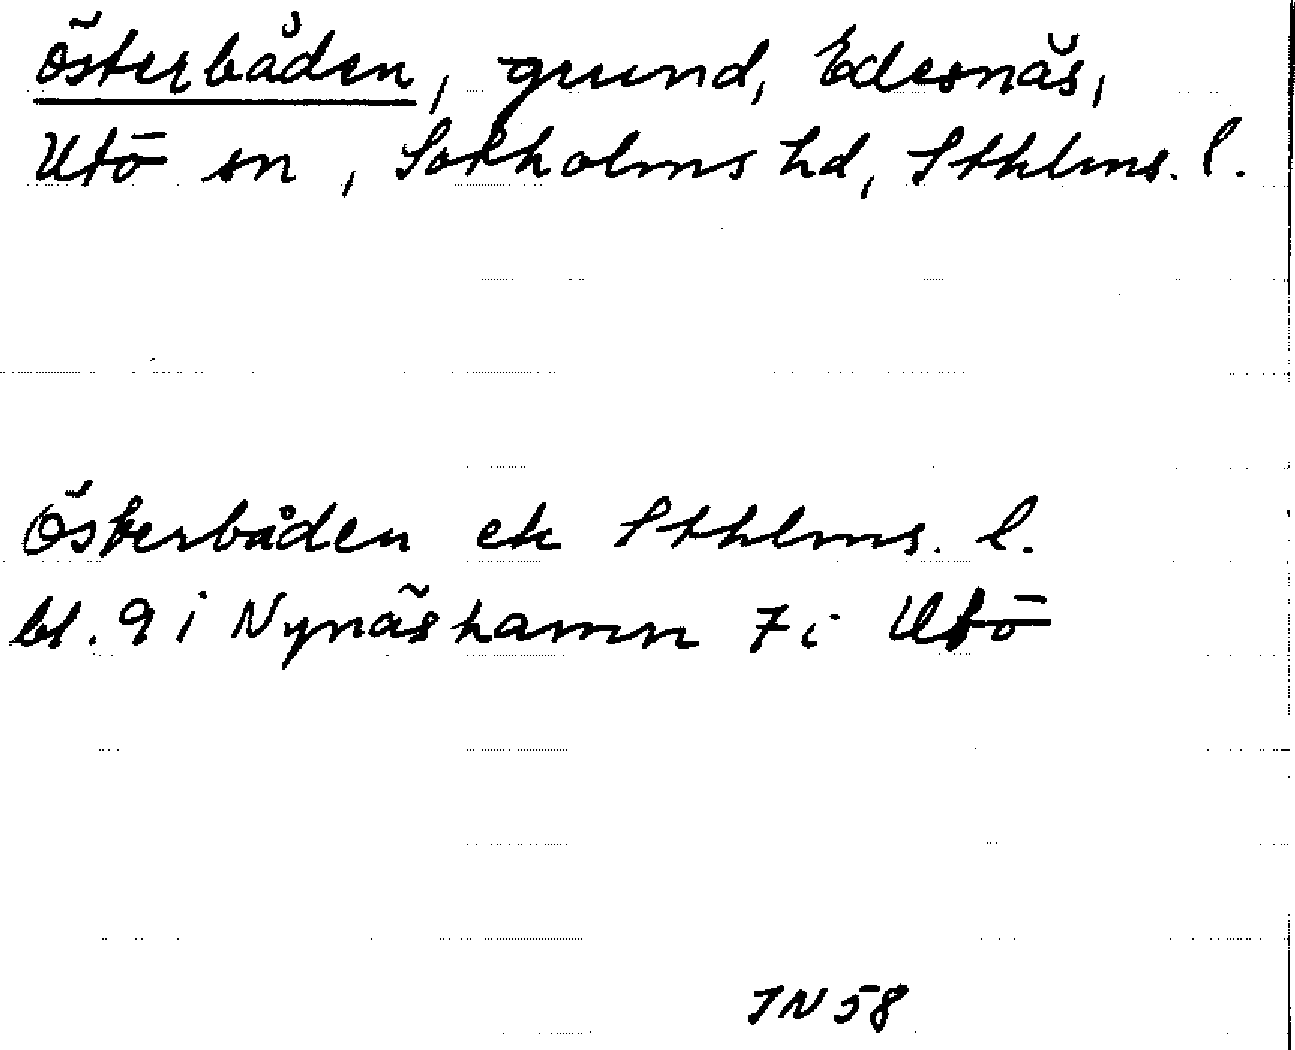 Österbåden, grund, Edesnäs,
Utö sn, Sotholms hd, Sthlms. l.
Österbåden ek Sthlms. l.
bl. 9 i Nynäshamn 7 i Utö
JN 58